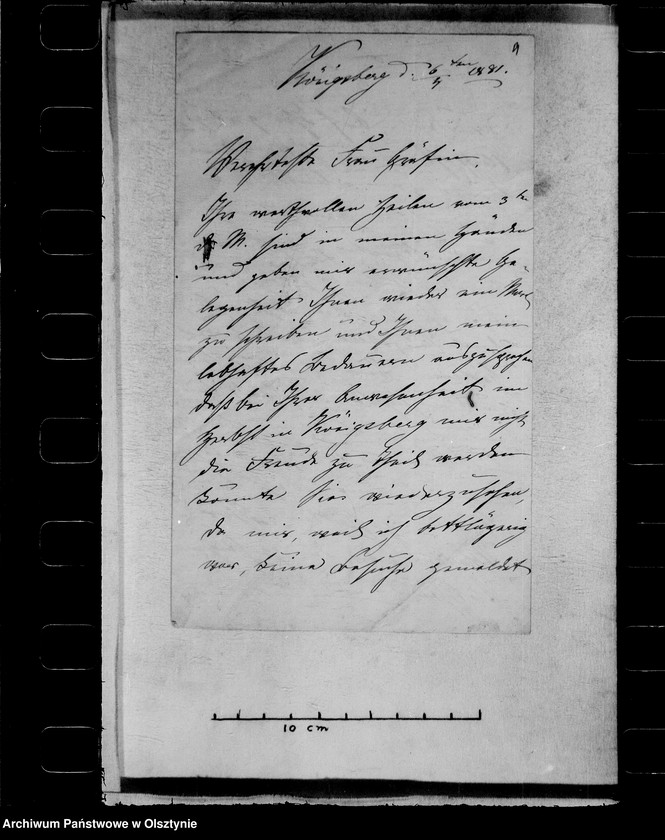 9
Königsberg d. 6ten/4 1881.
Verehrteste Frau Gräfin,
Ihre werthvollen Zeilen vom 3ten
d. M. sind in meinen Händen
und geben mir erwünschte Ge-
legenheit Ihnen wieder ein Mal
zu schreiben und Ihnen mein
lebhaftes Bedauern auszusprechen
daß bei Ihrer Anwesenheit im
Herbst in Königsberg mir nicht
die Freude zu Theil werden
konnte Sie wiederzusehen,
da mir, weil ich bettlägerig
war, keine Besuche gemeldet
10 cm
Archiwum Państwowe w Olsztynie